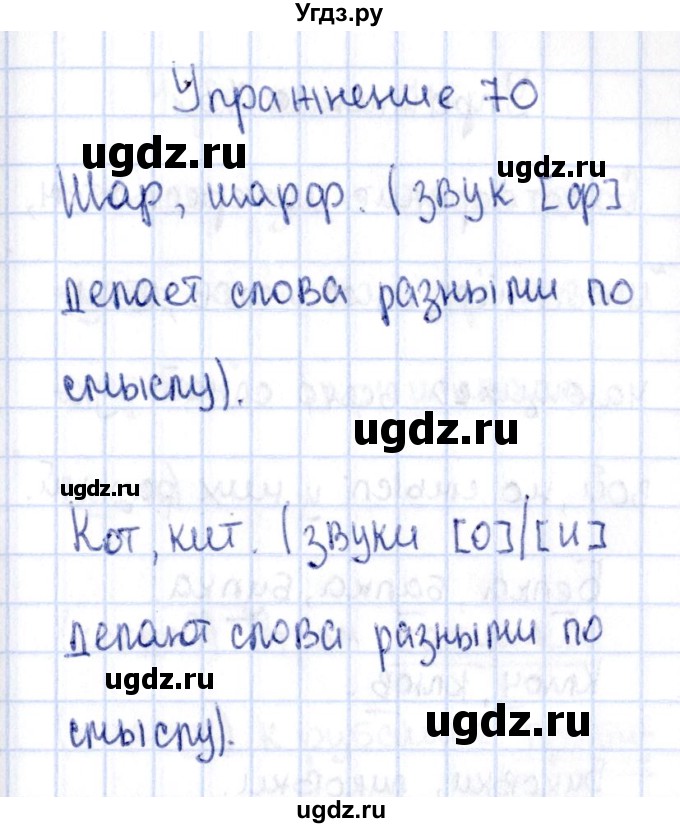 Угдз.ру
Упражнение 70
ugdz.ru
ugdz.ru
Шар, шарф. (звук [ф]
делает слова разными по
смыслу).
ugdz.ru
ugdz.ru
Кот, кит. (звуки [о]/[и]
делают слова разными по
ugdz.ru
смыслу).
ugdz.ru
ugdz.ru